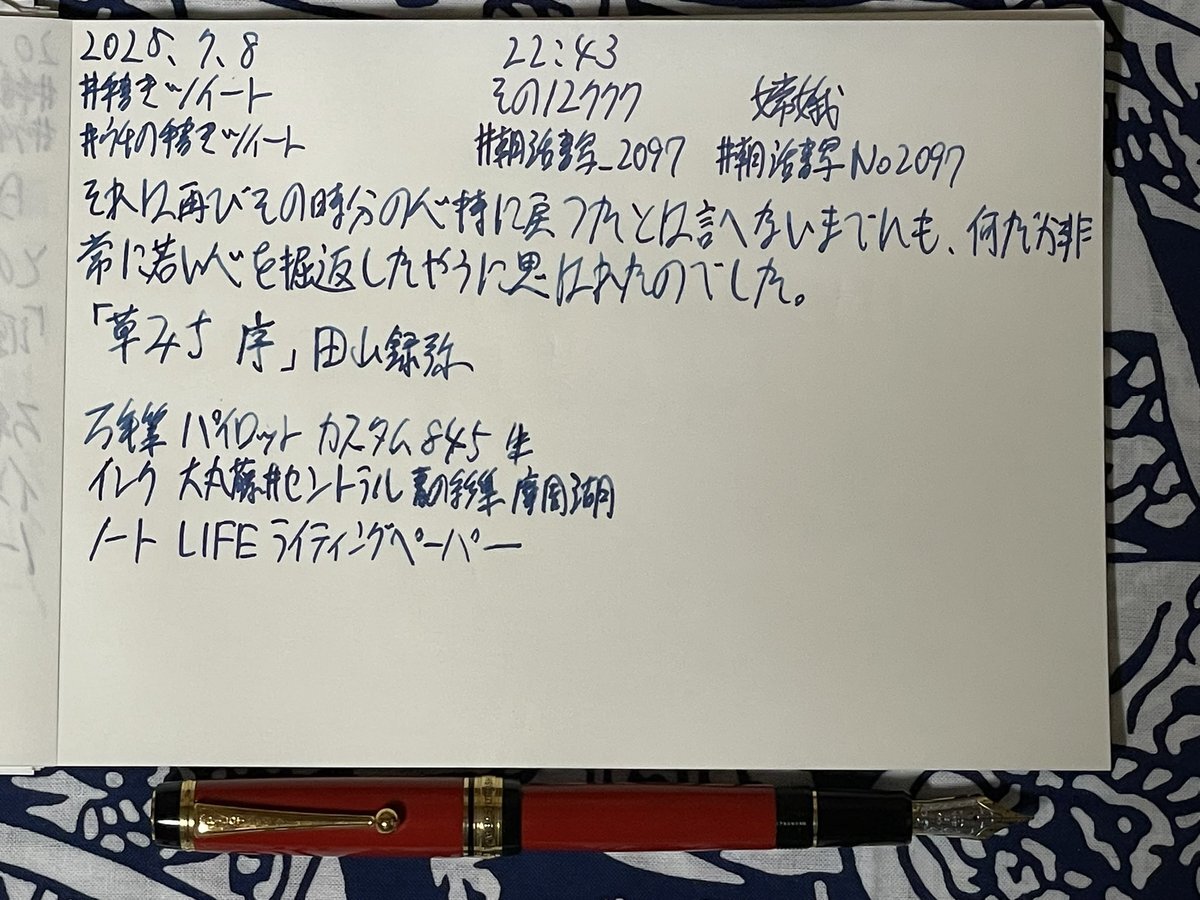 2025.7.8 22:43
#手書きツイート その12777 嫦娥
#万年筆の手書きツイート #朝活書写_2097 #朝活書写No2097
それは再びその時分の心持に戻つたとは言へないまでにも、何だか非
常に若い心を掘返したやうに思はれたのでした。
「草みち 序」田山録弥
万年筆 パイロット カスタム845 朱
インク 大丸藤井セントラル 彩集 摩周湖
ノート LIFE ライティングペーパー